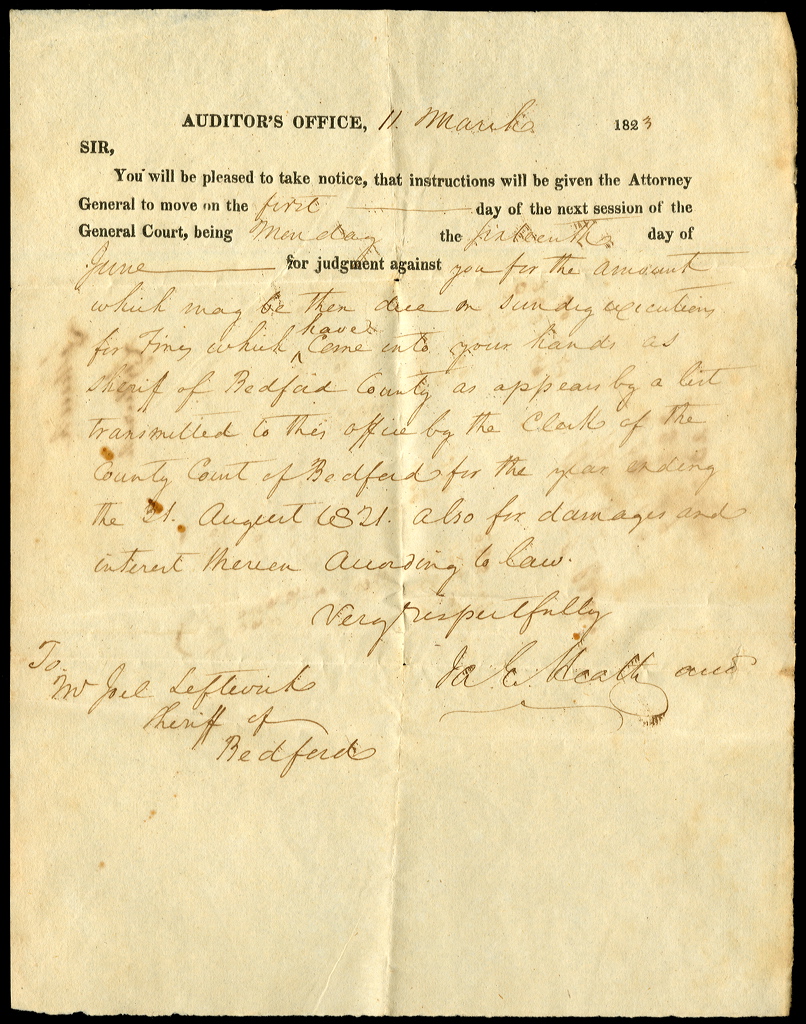 AUDITOR'S OFFICE, 11. March 1823
SIR,
You will be pleased to take notice, that instructions will be given the Attorney
General to move on the first day of the next session of the
General Court, being Monday the sixteenth day of
June for judgment against you for the amount
which may be then due on sundry executions
for Fines which have come into your hands as
Sheriff of Bedford County as appears by a list
transmitted to this office by the Clerk of the
County Court of Bedford for the year ending
the 31. August 1821. also for damages and
interest thereon according to law.
Very respectfully
Ja E. Heath aud
To
Mr Joel Leftwich
Sheriff of
Bedford